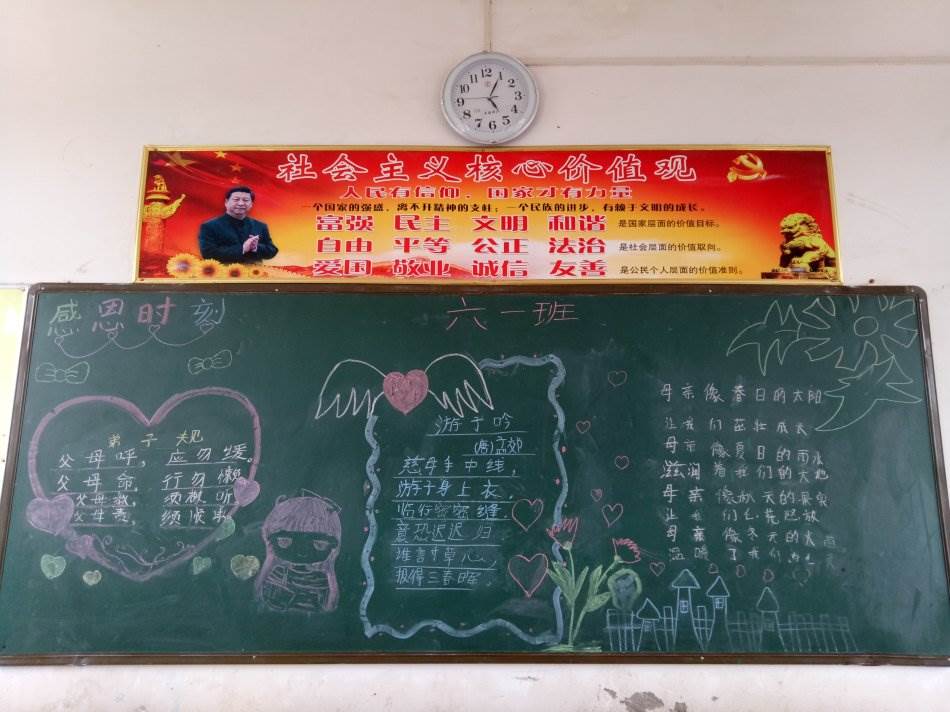 12
1
2
3
4
5
6
7
8
9
10
11
社会主义核心价值观
人民有信仰，国家才有力量
一个国家的强盛，离不开精神的支柱；一个民族的进步，有赖于文明的成长。
富强 民主 文明 和谐 是国家层面的价值目标。
自由 平等 公正 法治 是社会层面的价值取向。
爱国 敬业 诚信 友善 是公民个人层面的价值准则。
感恩时刻
六一班
弟子规
父母呼，应勿缓。
父母命，行勿懒
父母教，须敬听
父母责，须顺承
游子吟
(唐)孟郊
慈母手中线，
游子身上衣，
临行密密缝，
意恐迟迟归
谁言寸草心，
报得三春晖
母亲像春日的太阳
让我们茁壮成长
母亲像夏日的雨水
滋润着我们的大地
母亲像秋天的果实
让我们
母亲像冬天的火
温暖了我们